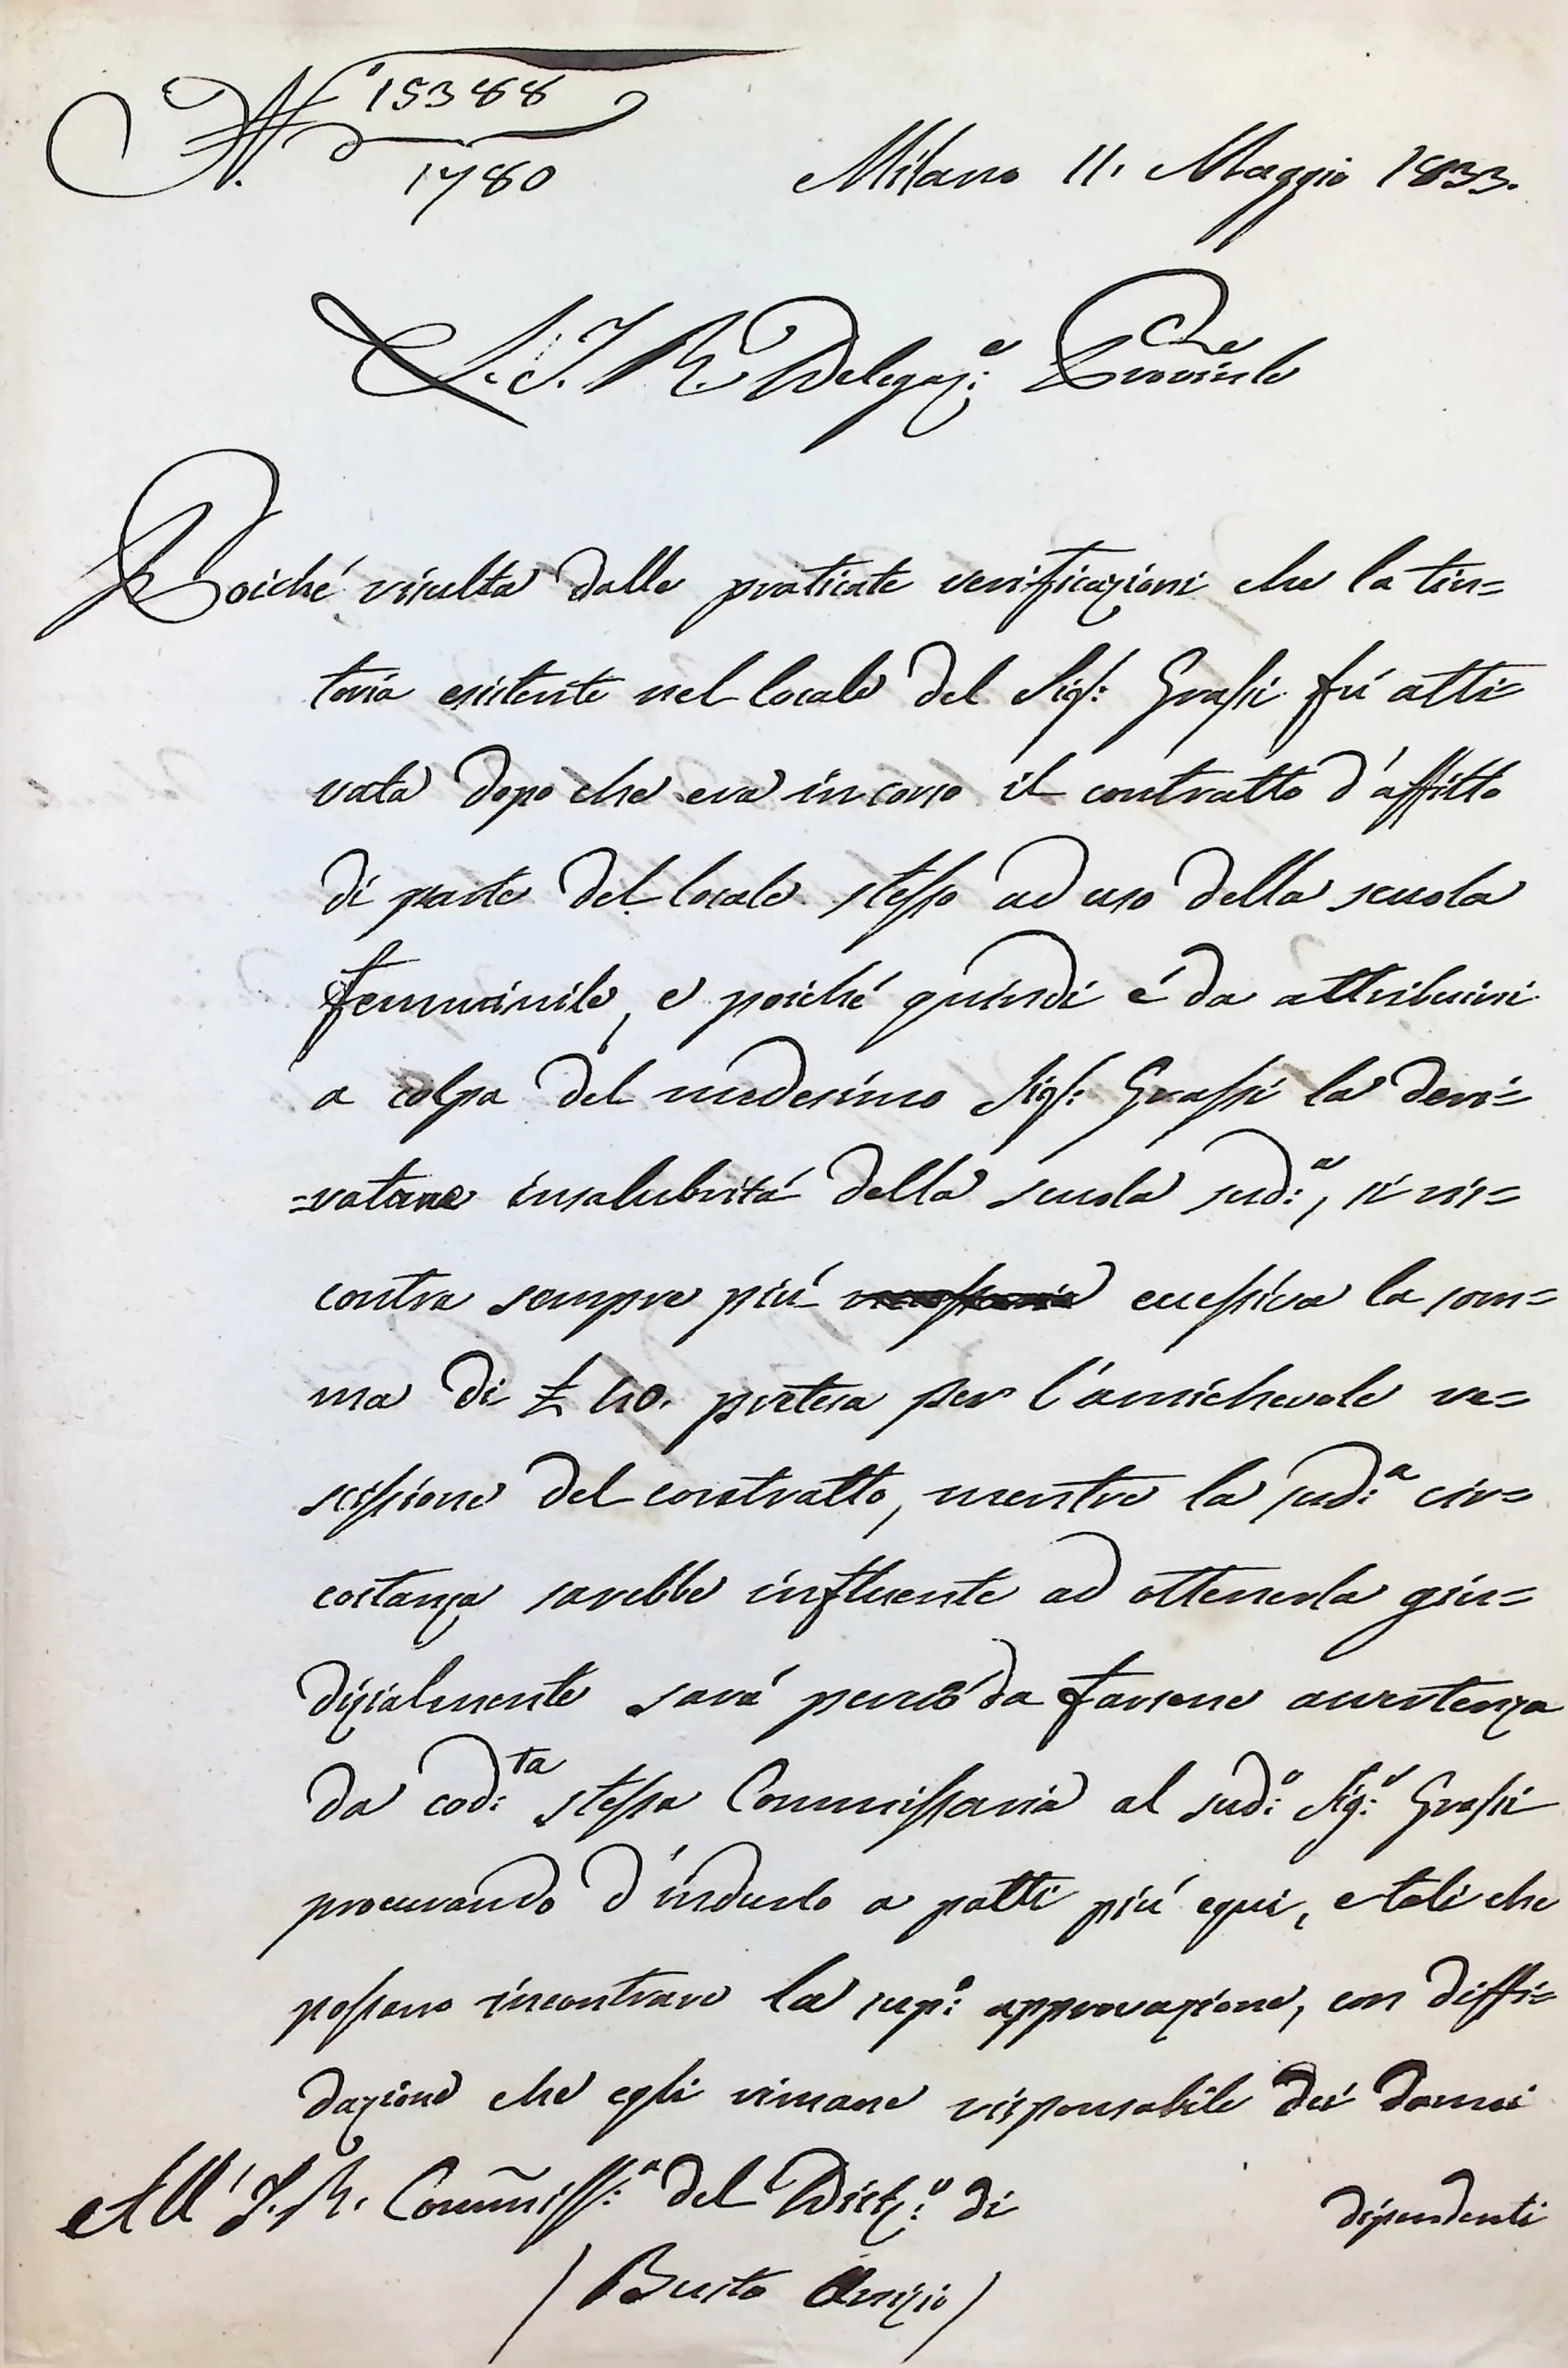 N.° 15388
1780
Milano 11. Maggio 1833.
L'I. R. Delegaz:e Provinle
Poiché risulta dalle praticate verificazioni che la tin=
toria esistente nel locale del Sigr: Grassi fú atti=
vata dopo che era in corso il contratto d'affitto
di parte del locale stesso ad uso della scuola
femminile, e poiché quindi é da attribuirsi
a colpa del medesimo Sigr: Grassi la deri=
=vatane insalubritá della scuola sud:a, si ris=
contra sempre piú eccessiva la som=
ma di £ 40. pretesa per l'amichevole re=
scissione del contratto, mentre la sud:a cir=
costanza sarebbe influente ad ottenerla giu=
dizialmente sará perció da farsene avvertenza
da cod:ta stessa Commissaria al sud:o Sig:r Grassi
procurando d'indurlo a patti piú equi, e tali che
possano incontrare la sup:e approvazione, con diffi=
dazione che egli rimane risponsabile dei danni
dipendenti
All' I. R. Com̃iss:a del Distr:o di
/ Busto Arsizio /